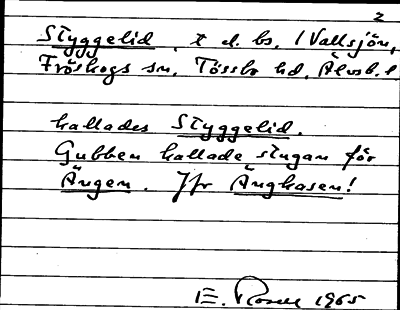 2
Styggelid, t d. bs. i Vallsjön,
Fröskogs sn, Tössbo hd, Älvsb. l
kallades Styggelid.
Gubben kallade stugan för
Ängen. Jfr Änghasen!
E. Rosell 1965